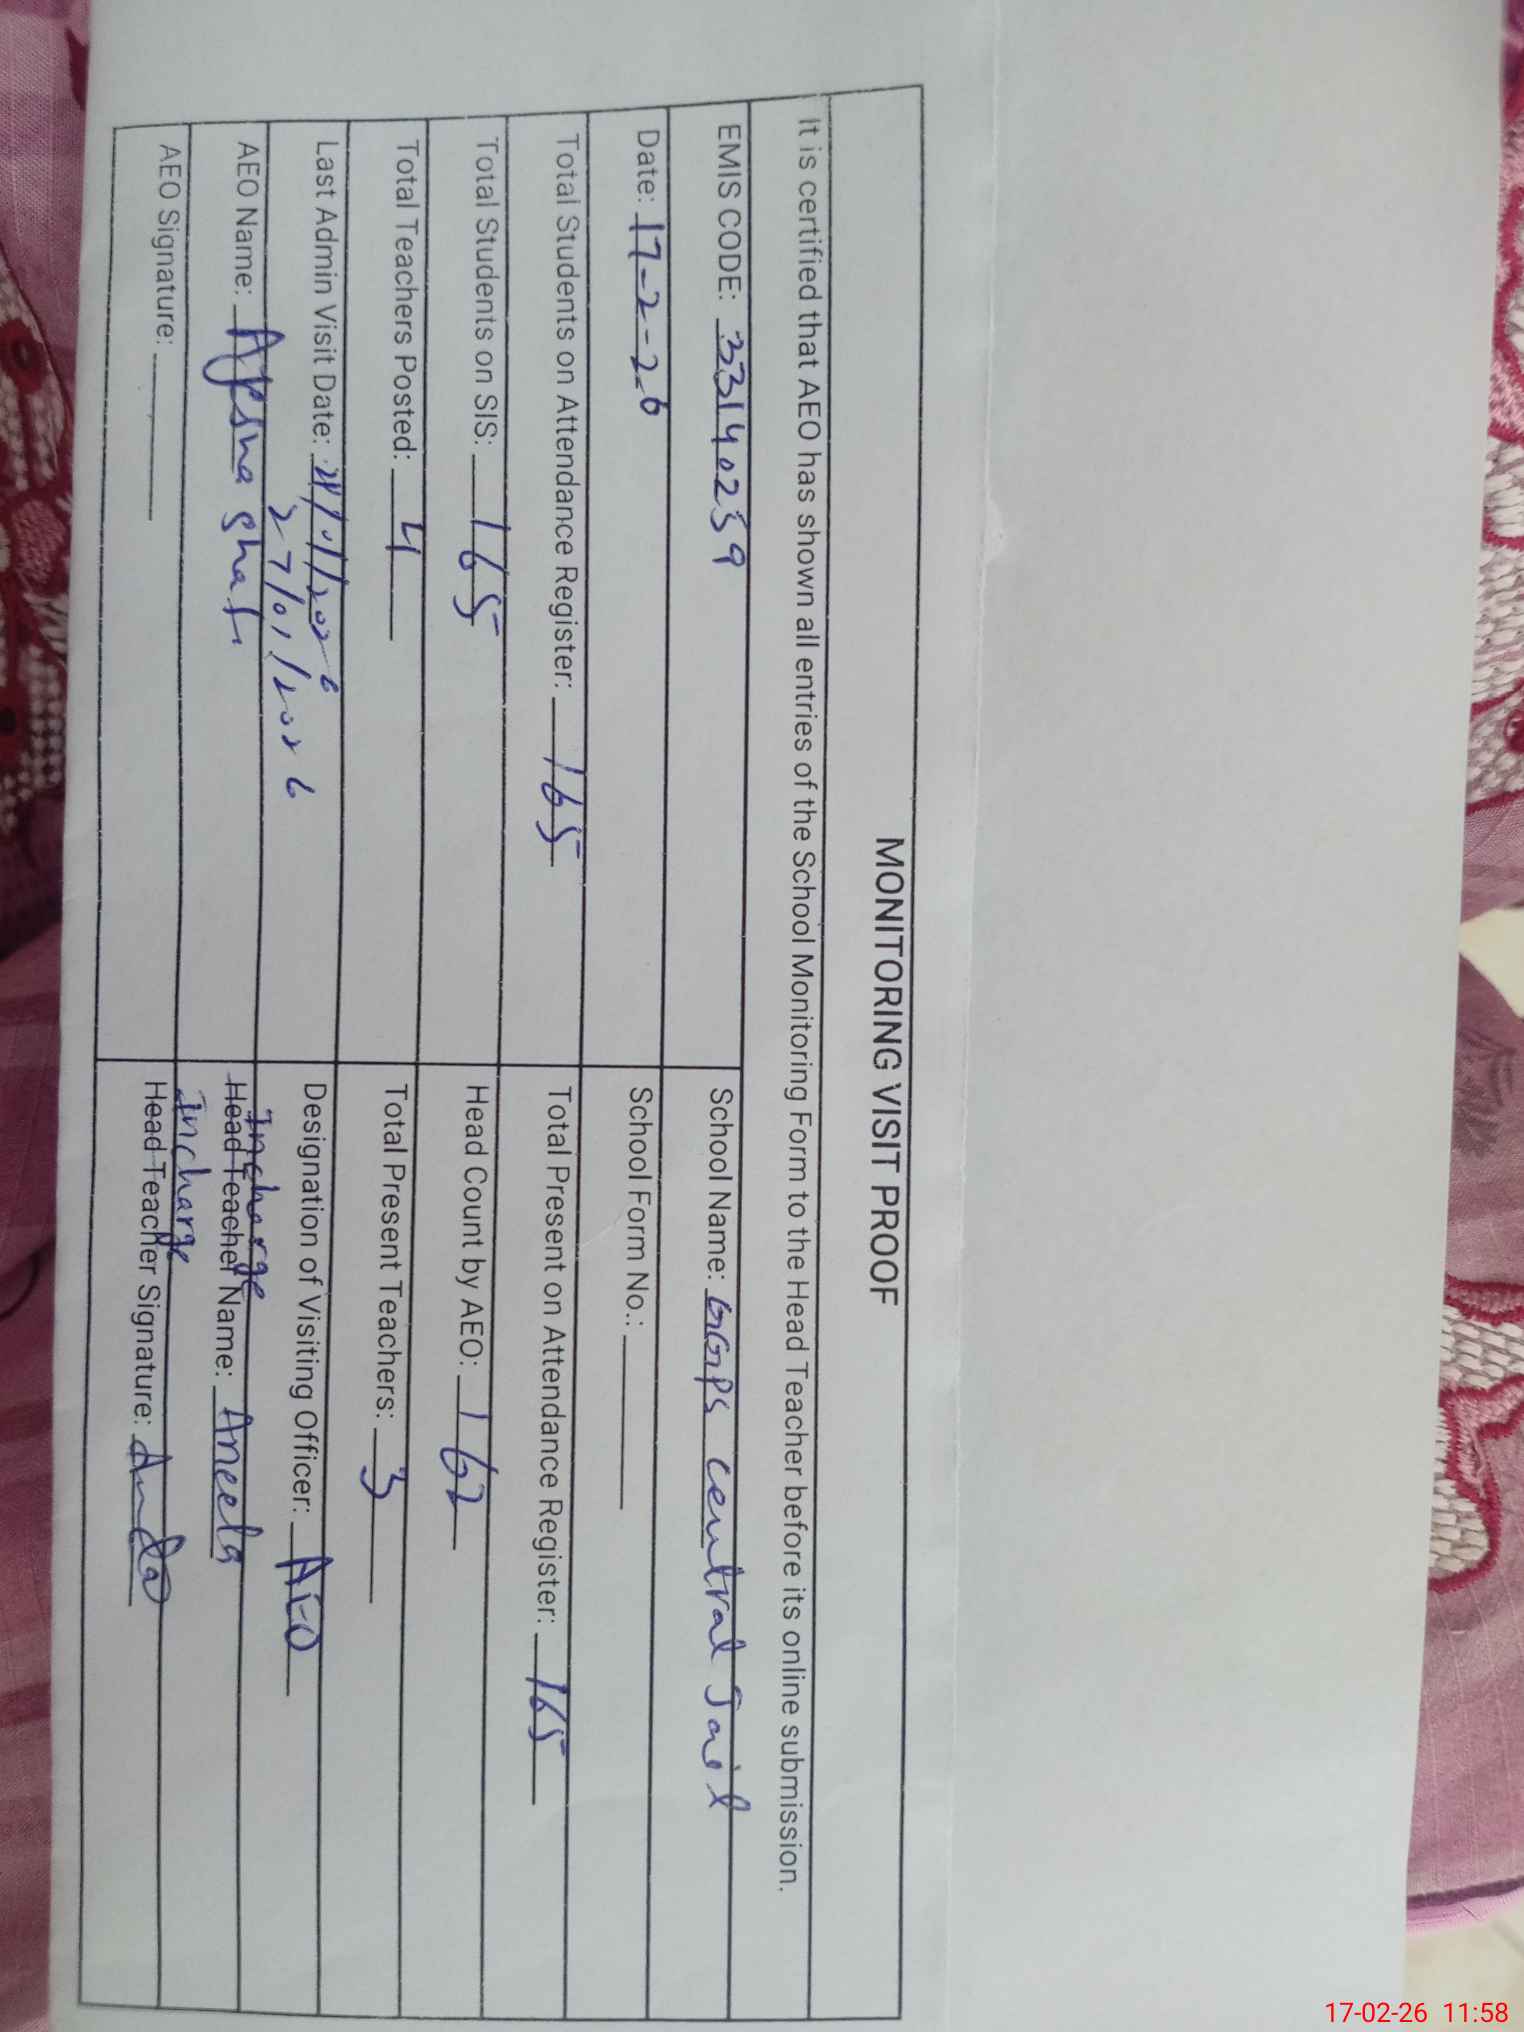 MONITORING VISIT PROOF
It is certified that AEO has shown all entries of the School Monitoring Form to the Head Teacher before its online submission.
EMIS CODE: 33140259
School Name: GGPS central Jail
Date: 17-2-26
School Form No.:
Total Students on Attendance Register: 165
Total Present on Attendance Register: 165
Total Students on SIS: 165
Head Count by AEO: 162
Total Teachers Posted: 4
Total Present Teachers: 3
Last Admin Visit Date:
27/01/2026
Designation of Visiting Officer: AEO
AEO Name: Ayesha Shafi
Incharge
Head Teacher Name: Aneela
AEO Signature:
Incharge
Head Teacher Signature:
17-02-26 11:58